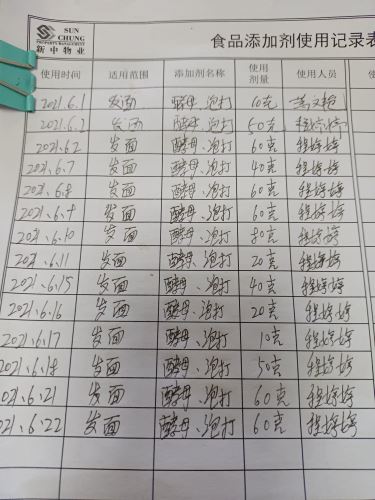 SUN CHUNG
PROPERTY MANAGEMENT
新中物业
食品添加剂使用记录表
使用时间 适用范围 添加剂名称 使用剂量 使用人员
2021.6.1 发面 酵母、泡打 10克
2021.6.2 发面 酵母、泡打 50克 程婷婷
2021.6.2 发面 酵母、泡打 60克 程婷婷
2021.6.7 发面 酵母、泡打 40克 程婷婷
2021.6.8 发面 酵母、泡打 60克 程婷婷
2021.6.9 发面 酵母、泡打 60克 程婷婷
2021.6.10 发面 酵母、泡打 80克 程婷婷
2021.6.11 发面 酵母、泡打 20克 程婷婷
2021.6.15 发面 酵母、泡打 40克 程婷婷
2021.6.16 发面 酵母、泡打 20克 程婷婷
2021.6.17 发面 酵母、泡打 10克 程婷婷
2021.6.18 发面 酵母、泡打 50克 程婷婷
2021.6.21 发面 酵母、泡打 60克 程婷婷
2021.6.22 发面 酵母、泡打 60克 程婷婷